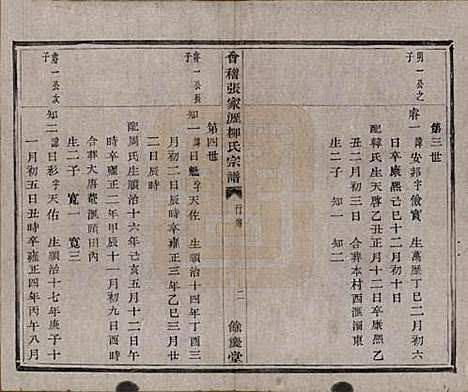 第三世
男一公之子
睿一 諱安邦字儉賓 生萬歷丁巳二月初六
日卒康熙己巳十二月初十日
配韓氏生天啓乙丑正月十二日卒康熙乙
丑二月初三日 合葬本村西滙濱東
生二子 知一 知二
會稽張家瀝柳氏宗譜
行傳
二
餘慶堂
第四世
睿一公長子
知一 諱日魁字天佐 生順治十四年丁酉三
月初二日時卒雍正三年乙巳三月廿
二日辰時
配周氏生順治十六年己亥五月十二日
時卒雍正二年甲辰十一月初九日寅時
合葬大唐菴滙頭田內
生二子 寬一 寬三
睿一公次子
知二 諱日彩字天佑 生順治十七年庚子十
一月初五日丑時卒雍正四年丙午八月